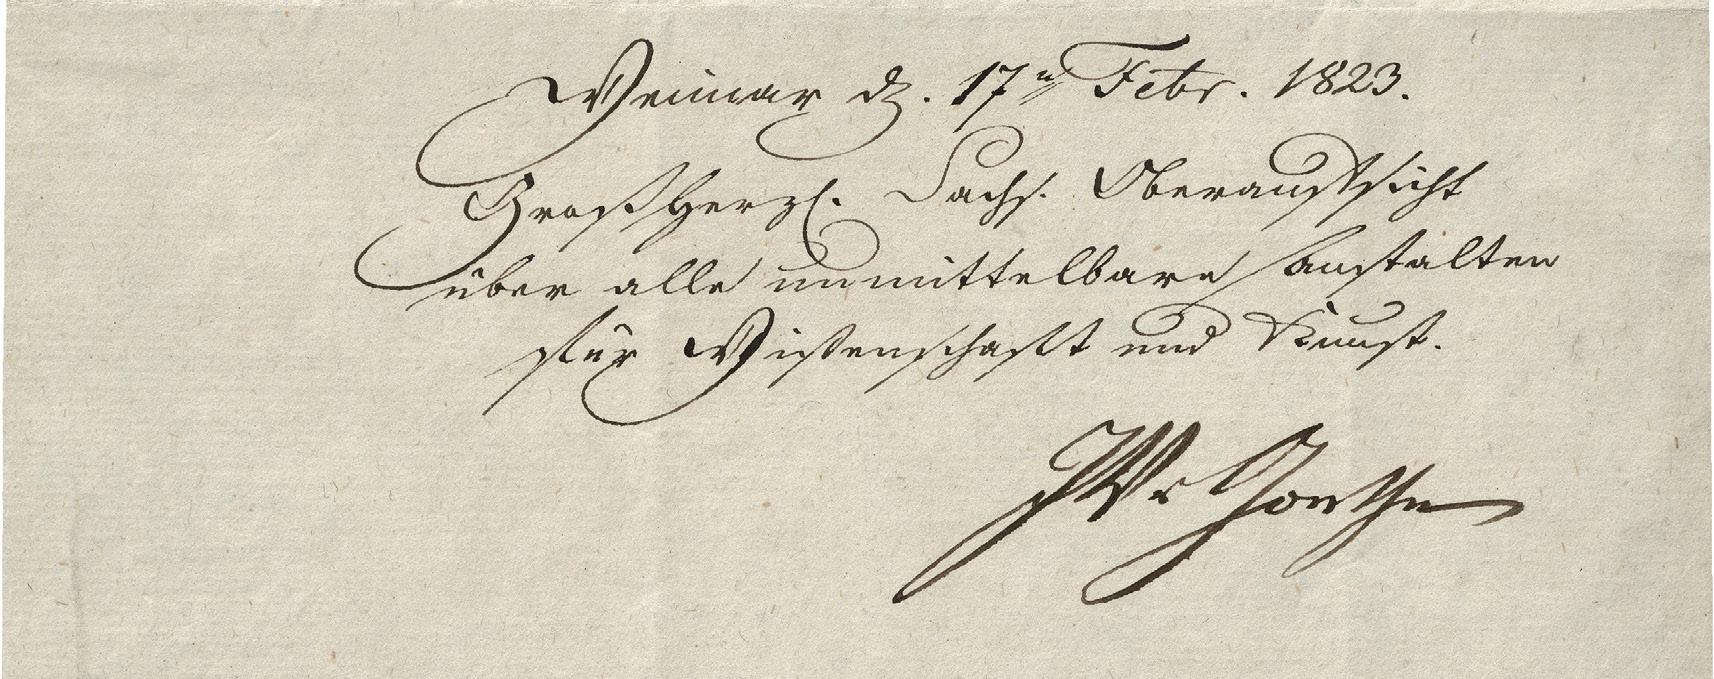 Weimar d. 17n Febr. 1823.
Großherzl. Sächs. Oberaufsicht
über alle unmittelbare Anstalten
für Wissenschaft und Kunst.
JWvGoethe